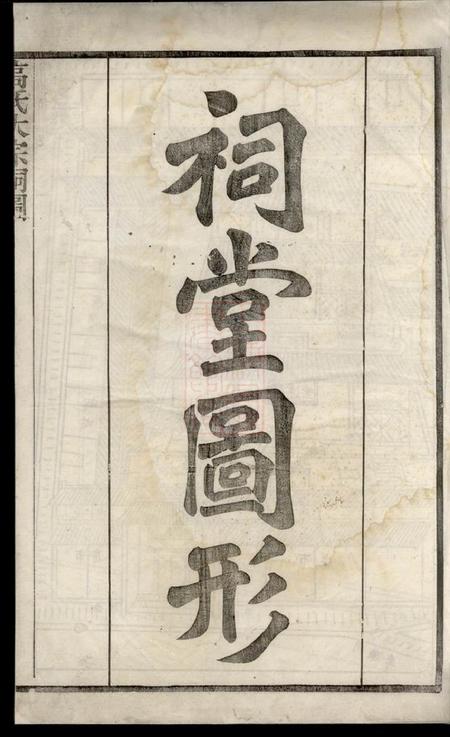 祠堂圖形
高氏大宗祠圖